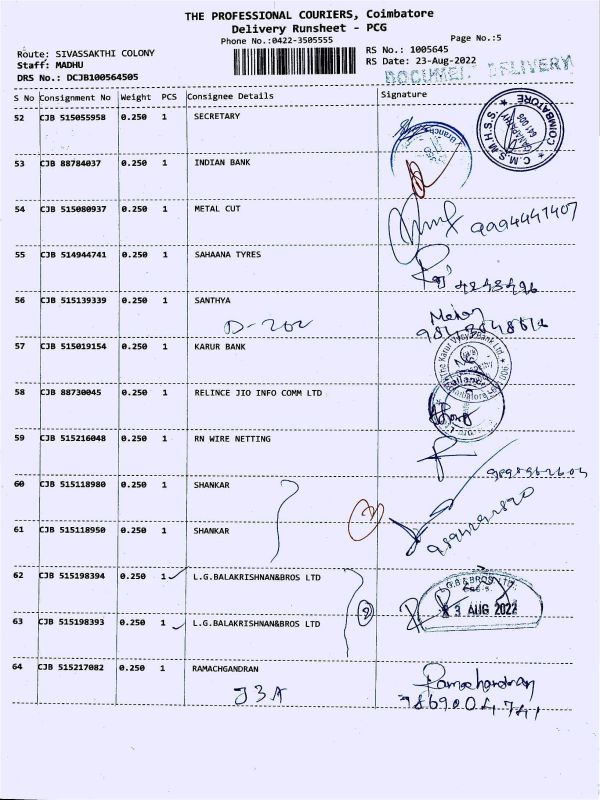 THE PROFESSIONAL COURIERS, Coimbatore
Delivery Runsheet - PCG
Phone No.:0422-3505555
Page No.:5
Route: SIVASSAKTHI COLONY
RS No.: 1005645
Staff: MADHU
RS Date: 23-Aug-2022
DRS No.: DCJB100564505
DOCUMENT DELIVERY
S No Consignment No Weight PCS Consignee Details Signature
52 CJB 515055958 0.250 1 SECRETARY
C.M.S.M.H.S.S. * COIMBATORE *
GANAPATHY
641 006
53 CJB 88784037 0.250 1 INDIAN BANK
54 CJB 515080937 0.250 1 METAL CUT
9994447407
55 CJB 514944741 0.250 1 SAHAANA TYRES
56 CJB 515139339 0.250 1 SANTHYA
D-202
57 CJB 515019154 0.250 1 KARUR BANK
The Karur Vysya Bank Ltd.
58 CJB 88730045 0.250 1 RELINCE JIO INFO COMM LTD
59 CJB 515216048 0.250 1 RN WIRE NETTING
60 CJB 515118980 0.250 1 SHANKAR
2
61 CJB 515118950 0.250 1 SHANKAR
62 CJB 515198394 0.250 1 L.G.BALAKRISHNAN&BROS LTD
L.G.B & BROS LTD.
23 AUG 2022
2
63 CJB 515198393 0.250 1 L.G.BALAKRISHNAN&BROS LTD
64 CJB 515217082 0.250 1 RAMACHGANDRAN
J3A
Ramachandran
9869004741